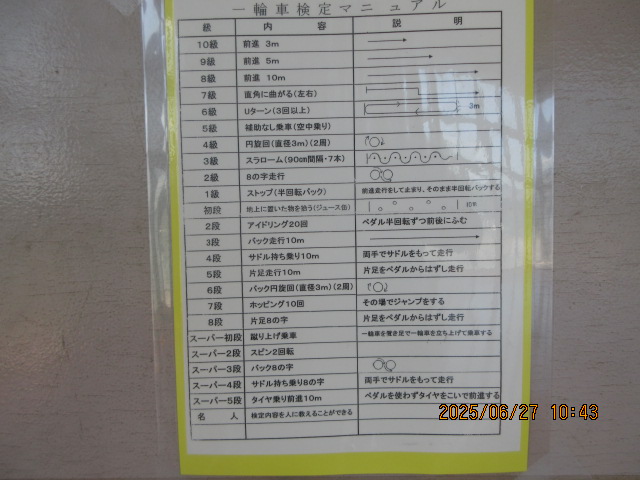 一輪車検定マニュアル
級 内容 説明
10級 前進 3m
9級 前進 5m
8級 前進 10m
7級 直角に曲がる(左右)
6級 Uターン(3回以上) 3m
5級 補助なし乗車(空中乗り)
4級 円旋回(直径3m)(2周)
3級 スラローム(90cm間隔・7本)
2級 8の字走行
1級 ストップ(半回転バック) 前進走行をして止まり、そのまま半回転バックする
初段 地上に置いた物を拾う(ジュース缶) 10m
2段 アイドリング20回 ペダル半回転ずつ前後にふむ
3段 バック走行10m
4段 サドル持ち乗り10m 両手でサドルをもって走行
5段 片足走行10m 片足をペダルからはずし走行
6段 バック円旋回(直径3m)(2周)
7段 ホッピング10回 その場でジャンプをする
8段 片足8の字 片足をペダルからはずし走行
スーパー初段 蹴り上げ乗車 一輪車を置き足で一輪車を立ち上げて乗車する
スーパー2段 スピン2回転
スーパー3段 バック8の字
スーパー4段 サドル持ち乗り8の字 両手でサドルをもって走行
スーパー5段 タイヤ乗り前進10m ペダルを使わずタイヤをこいで前進する
名人 検定内容を人に教えることができる
2025/06/27 10:43